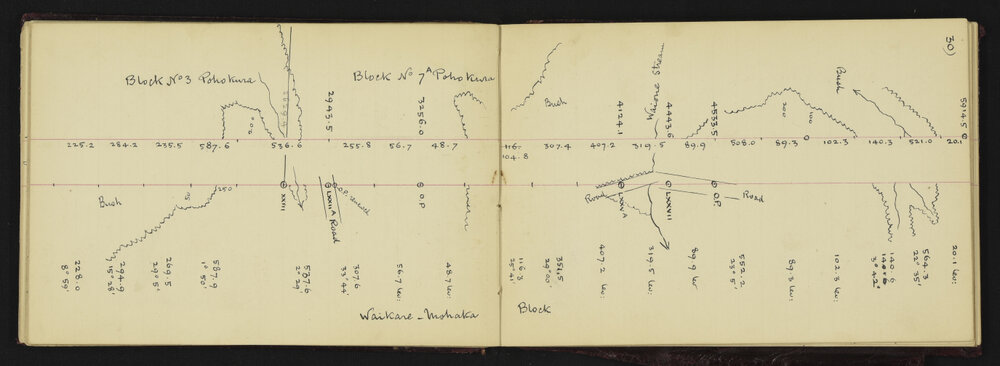 30)
Block No 3 Pohokura
Block No 7A Pohokura
2943.5
3256.0
200
225.2 284.2 235.5 587.6 536.6 255.8 56.7 48.7
Bush
50
250
XXVII
LXXII A
Road
O.P. removed
O.P.
228.0
8° 59'
294.9
15° 28'
269.5
29° 5'
587.9
1° 50'
587.6
2° 29'
307.6
33° 44'
56.7 lev:
48.7 lev:
Waikare - Mohaka
Bush
4124.1
Waione Stream
4443.6
4533.5
200
100
Bush
5914.5
116.
104.8 307.4 407.2 319.5 89.9 508.0 89.3 102.3 140.3 521.0 20.1
Road
LXXVA
LXXVII
O.P.
Road
116.3
25° 41'
351.5
29° 00'
407.2 lev:
319.5 lev:
89.9 lev
552.2
23° 5'
89.3 lev:
102.3 lev:
140.6
3° 42'
564.3
22° 35'
20.1 lev:
Block